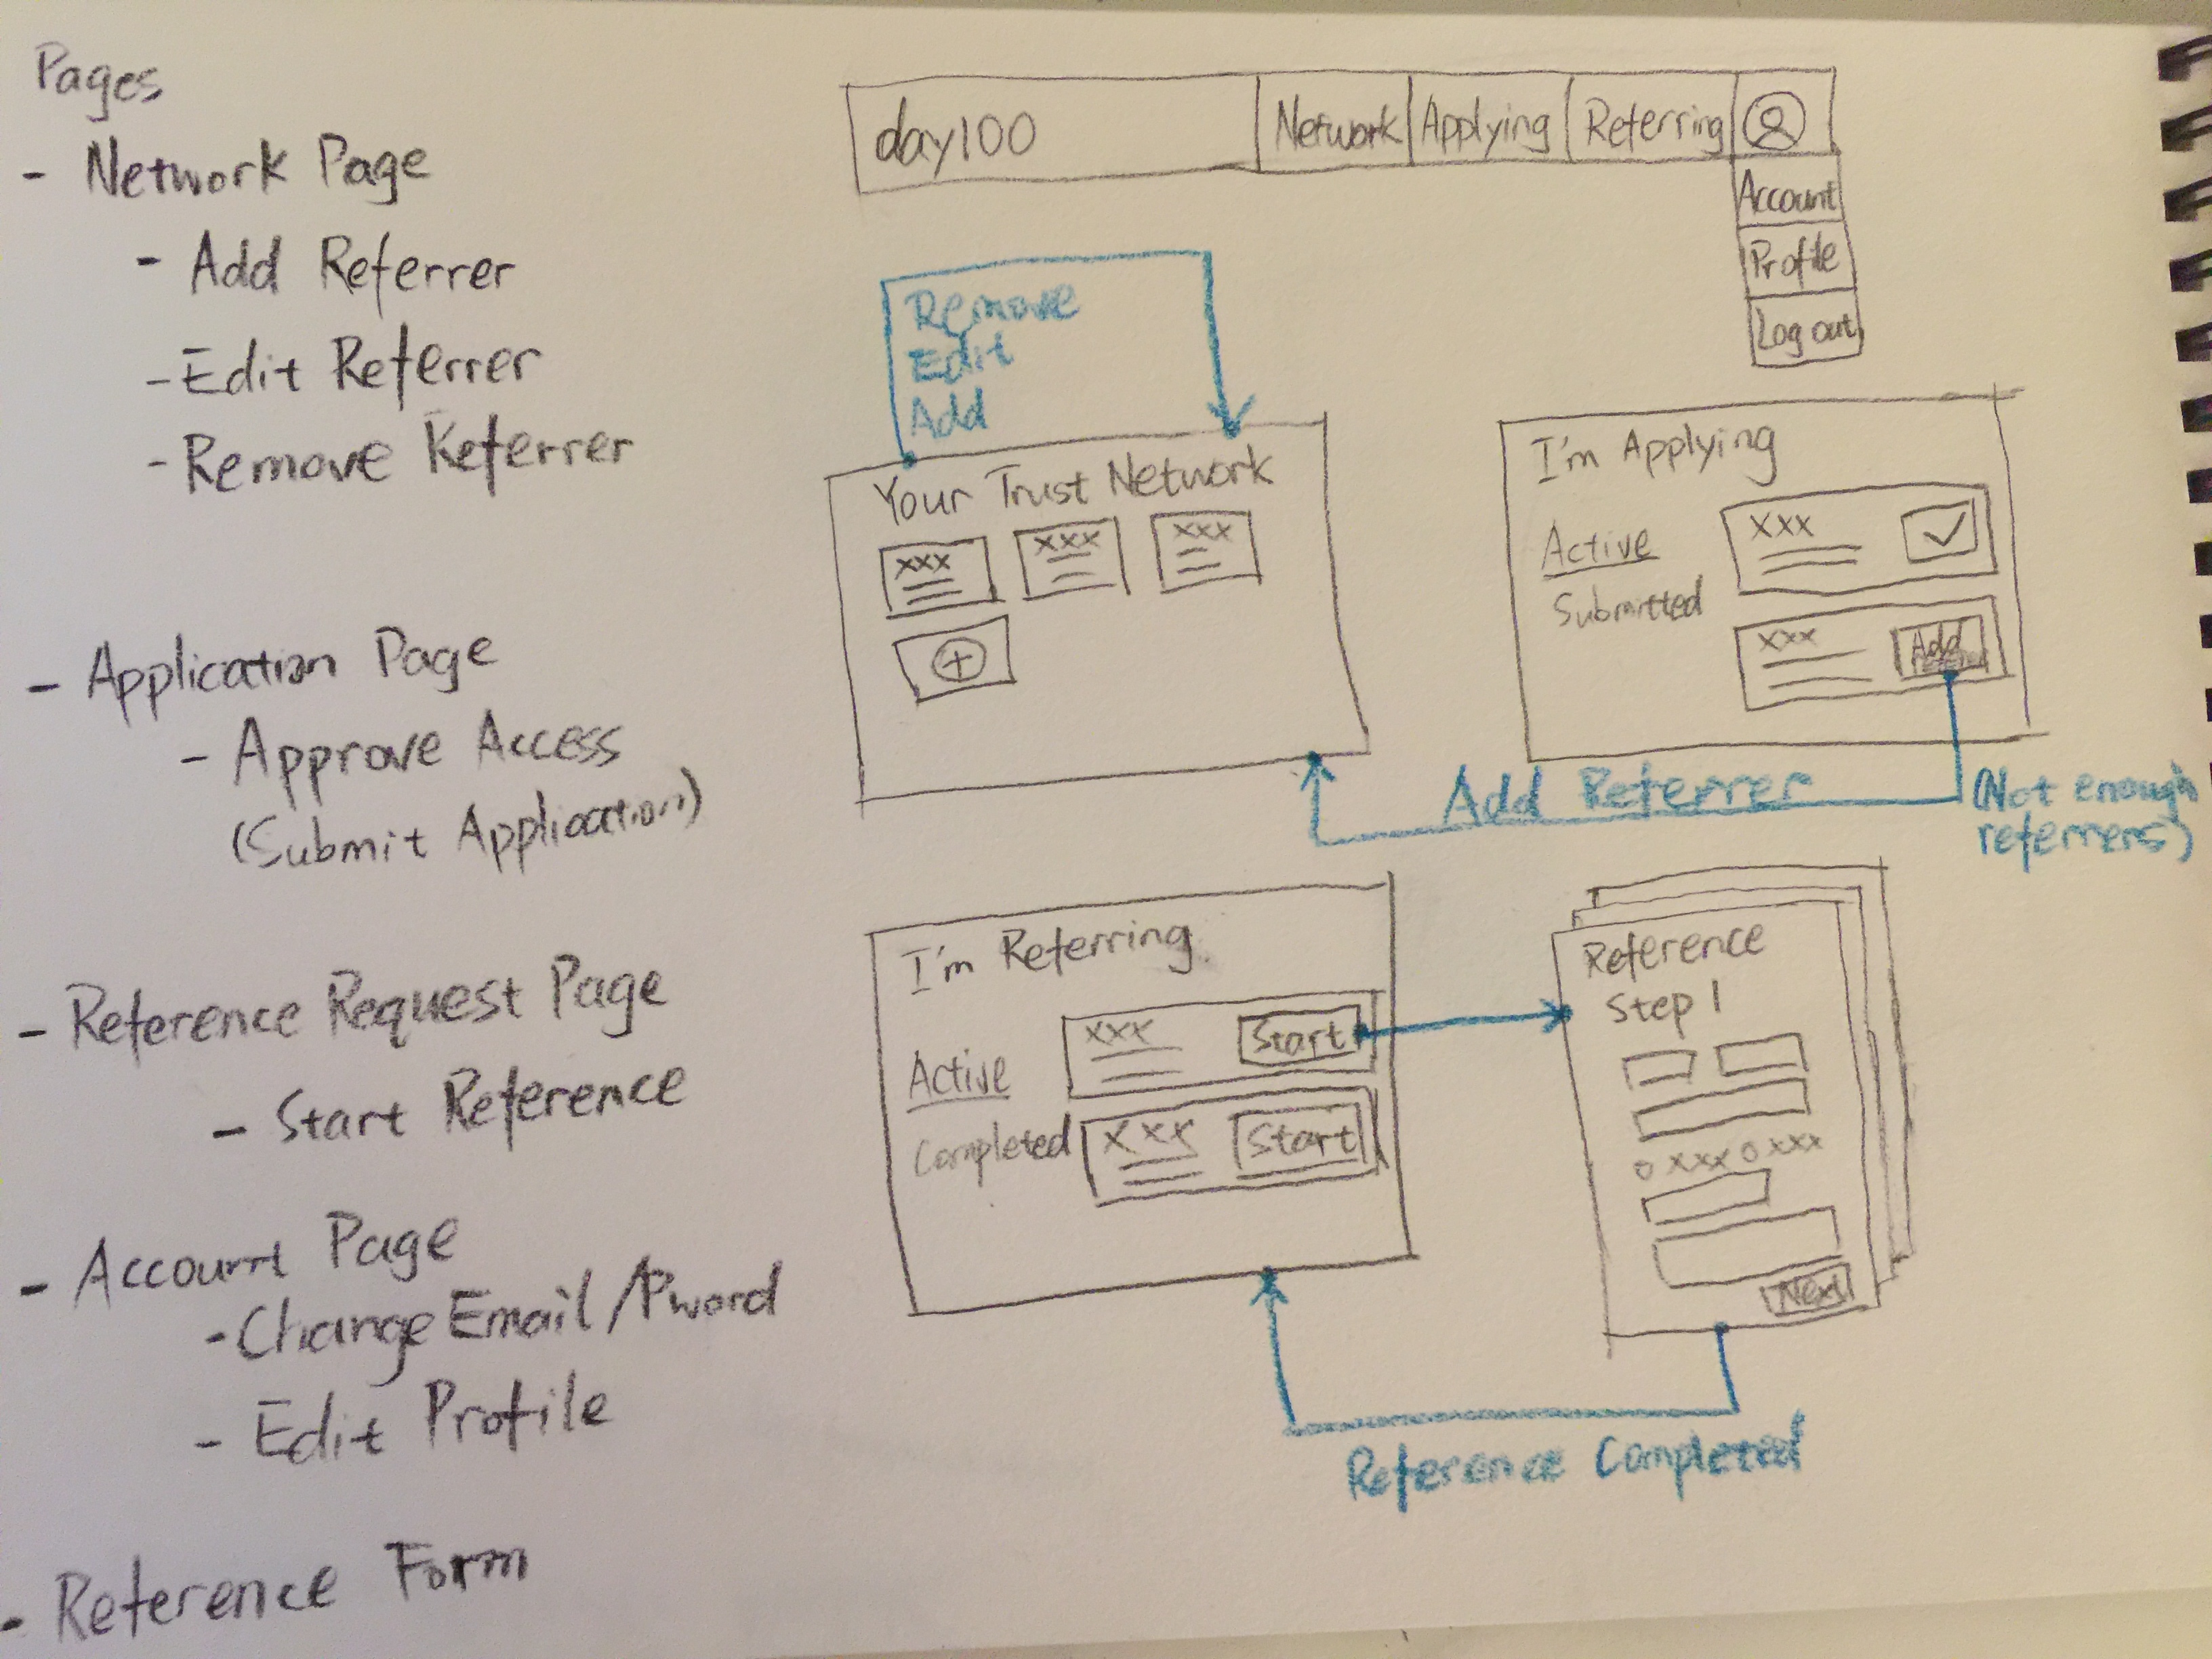 Pages
- Network Page
- Add Referrer
- Edit Referrer
- Remove Referrer
- Application Page
- Approve Access
(Submit Application)
- Reference Request Page
- Start Reference
- Account Page
- Change Email/Pword
- Edit Profile
- Reference Form
day100 Network Applying Referring
Account
Profile
Log out
Remove
Edit
Add
Your Trust Network
xxx xxx xxx
+
I'm Applying
Active
Submitted
xxx
xxx Add
Add Referrer
(Not enough
referrers)
I'm Referring
Active
Completed
xxx Start
xxx Start
Reference
Step 1
o xxx o xxx
Next
Reference Completed